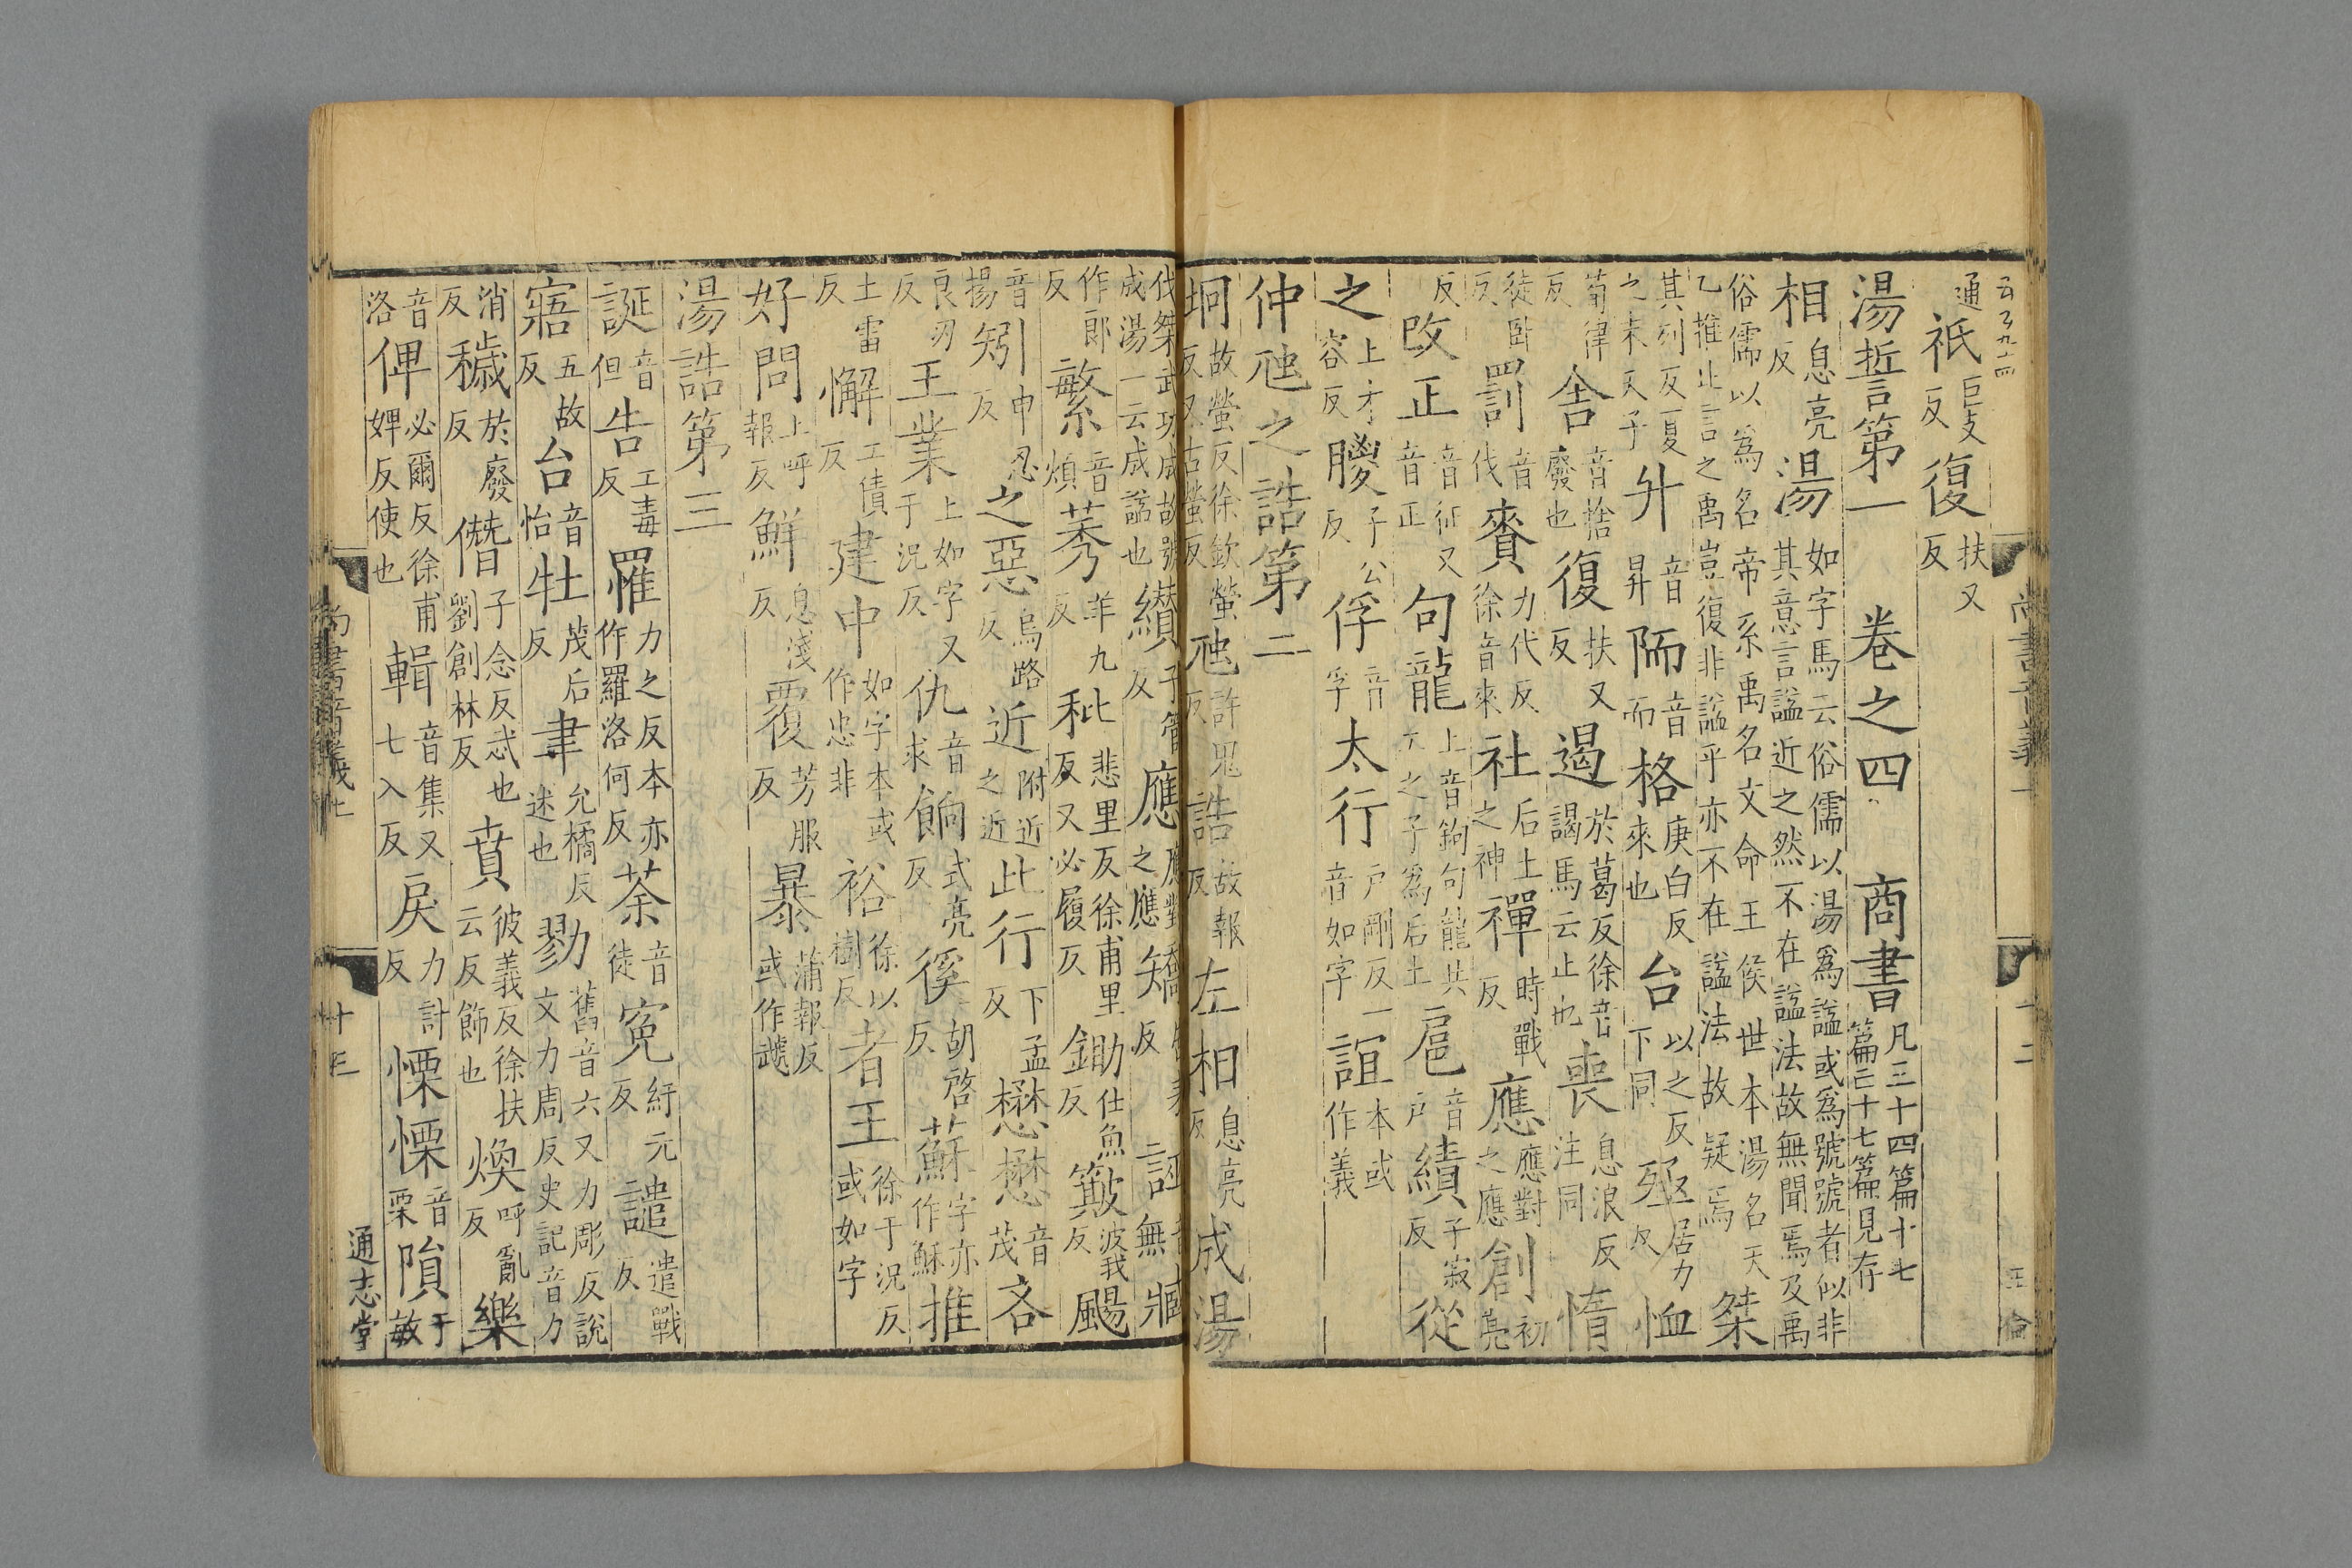 通祇巨支反復扶又反
湯誓第一 卷之四 商書凡三十四篇十七篇亡十七篇見存
相息亮反湯如字馬云俗儒以湯爲諡或爲號號者似非其意言諡近之然不在諡法故無聞焉及禹
俗儒以爲名帝系禹名文命王侯世本湯名天乙推此言之禹豈復非諡乎亦不在諡法故疑焉桀
其列反夏之末天子升音昇陑音而格庚白反來也台以之反下同殛居力反恤
荀律反舍音捨廢也復扶又反遏於葛反徐音謁馬云止也喪息浪反注同惰
徒臥反罰音伐賚力代反徐音來社后土之神禪時戰反應應對之應創初亮
反改正音征又音正句龍上音鉤句龍共工之子爲后土扈音戶績子寂反從
之上才容反朡子公反俘音孚太行戶剛反一音如字誼本或作義
仲虺之誥第二
坰故螢反徐欽螢反又古螢反虺許鬼反誥故報反左相息亮反成湯
伐桀武功成故號成湯一云成諡也纘子管反應應對之應矯居表反誣音無臧
作郎反繁音煩莠羊九反秕悲里反徐甫里反又必履反鋤仕魚反簸波我反颺
音揚矧申忍反之惡烏路反近附近之近此行下孟反懋懋音茂吝
良刃反王業上如字又于況反仇音求餉式亮反徯胡啓反蘇字亦作穌推
土雷反懈工債反建中如字本或作忠非裕徐以樹反者王徐于況反或如字
好問上呼報反鮮息淺反覆芳服反暴蒲報反或作虣
湯誥第三
誕音但告工毒反罹力之反本亦作羅洛何反荼音徒冤紆元反譴遣戰反
寤五故反台音怡牡茂后反聿允橘反述也勠舊音六又力彫反說文力周反史記音力
消反穢於廢反僭子念反忒也劉創林反賁彼義反徐扶云反飾也煥呼亂反樂
音洛俾必爾反徐甫婢反使也輯音集又七入反戾力計反慄慄音栗隕于敏
尚書音義上
十三
通志堂